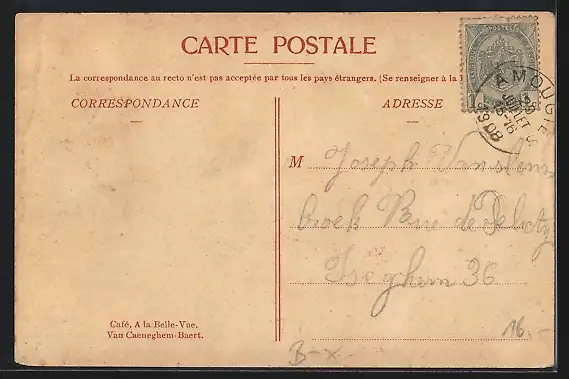 CARTE POSTALE
La correspondance au recto n'est pas acceptée par tous les pays étrangers. (Se renseigner à la
CORRESPONDANCE
ADRESSE
AMOUGIES
13
JUILLET
15-16
1908
M Joseph
broek Rue de
Iseghem 36
Café, A la Belle-Vue,
Van Caeneghem-Baert.
16.-
B-x